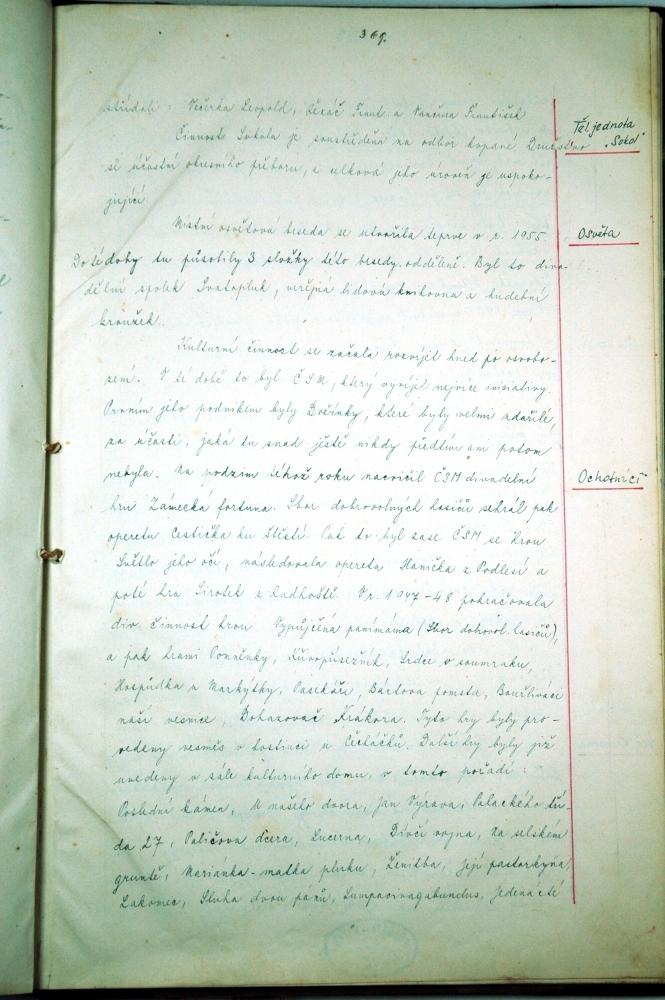 369.
Večerka Leopold, Frant. a Vančura František
Činnost Sokola je soustředěna na odbor kopané. Družstvo
Těl. jednota
"Sokol"
se účastní okresního přeboru, a celková jeho úroveň je uspoko-
jující.
Místní osvětová beseda se utvořila teprve v r. 1955.
Osvěta
Do té doby tu působily 3 složky této besedy odděleně. Byl to diva-
delní spolek Svatopluk, veřejná lidová knihovna a hudební
kroužek.
Kulturní činnost se začala rozvíjet hned po osvobo-
zení. V té době to byl ČSM, který vyvíjel nejvíce iniciativy.
Prvním jeho podnikem byly Dožínky, které byly velmi zdařilé,
za účasti, jaká tu snad ještě nikdy předtím ani potom
nebyla. Na podzim téhož roku nacvičil ČSM divadelní
Ochotníci
hru Zámecká fortuna. Sbor dobrovolných hasičů sehrál pak
operetu Cestička ku štěstí. Pak to byl zase ČSM se hrou
Světlo jeho očí, následovala opereta Hanička z Podlesí a
poté hra Sirotek z Radhoště. V r. 1947-48 pokračovala
div. činnost hrou Vypůjčená panímáma (Sbor dobrovol. hasičů),
a pak hrami Pomněnky, Srdce v soumraku,
Hospůdka u Markytky, Pasekáři, Bártova pomsta, Bouřliváci
naší vesnice, Dohazovač Krákora. Tyto hry byly pro-
vedeny vesměs v hostinci u Čecháčků. Další hry byly již
uvedeny v sále kulturního domu, v tomto pořadí:
Poslední kámen, U našeho dvora, Jan Výrava, Palackého tří-
da 27, Paličova dcera, Lucerna, Dívčí vojna, Na selském
gruntě, Mariánka-matka pluku, Ženitba, Její pastorkyňa,
Lakomec, Sluha dvou pánů, Lumpacivagabundus, Jedenácté